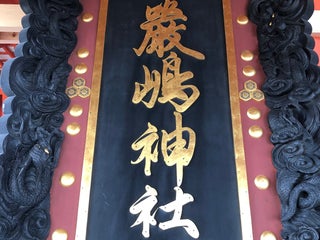 嚴嶋神社